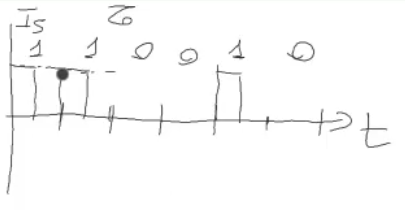 I_S
1 1 0 0 1 0
t